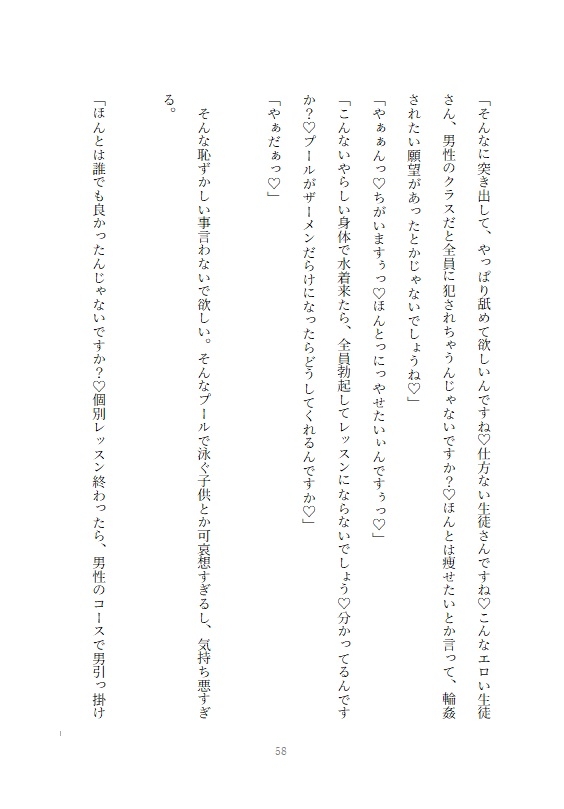 「そんなに突き出して、やっぱり舐めて欲しいんですね♡仕方ない生徒さんですね♡こんなエロい生徒
さん、男性のクラスだと全員に犯されちゃうんじゃないですか？♡ほんとは痩せたいとか言って、輪姦
されたい願望があったとかじゃないでしょうね♡」
「やぁぁんっ♡ちがいますぅっ♡ほんとっにっやせたいぃんですぅっ♡」
「こんないやらしい身体で水着来たら、全員勃起してレッスンにならないでしょう♡分かってるんです
か？♡プールがザーメンだらけになったらどうしてくれるんですか♡」
「やぁだぁっ♡」
そんな恥ずかしい事言わないで欲しい。そんなプールで泳ぐ子供とか可哀想すぎるし、気持ち悪すぎ
る。
「ほんとは誰でも良かったんじゃないですか？♡個別レッスン終わったら、男性のコースで男引っ掛け
58